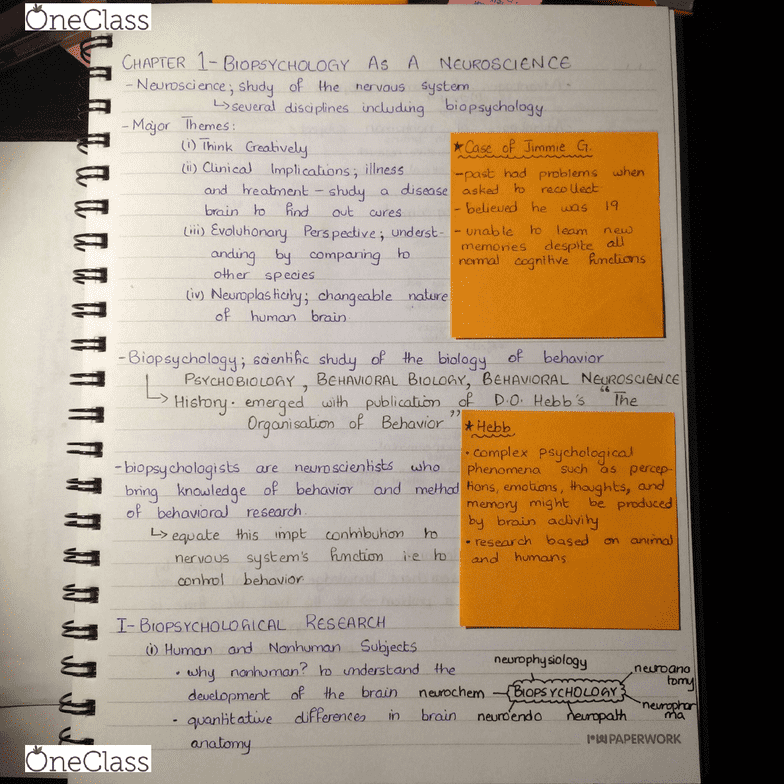 OneClass
CHAPTER 1- BIOPSYCHOLOGY AS A NEUROSCIENCE
- Neuroscience; study of the nervous system
↳ several disciplines including biopsychology
- Major Themes:
(i) Think Creatively
(ii) Clinical Implications; illness
and treatment - study a disease
brain to find out cures
(iii) Evolutionary Perspective; underst-
anding by comparing to
other species
(iv) Neuroplasticity; changeable nature
of human brain
★ Case of Jimmie G.
- past had problems when
asked to recollect
- believed he was 19
- unable to learn new
memories despite all
normal cognitive functions
- Biopsychology; scientific study of the biology of behavior
PSYCHOBIOLOGY, BEHAVIORAL BIOLOGY, BEHAVIORAL NEUROSCIENCE
↳ History · emerged with publication of D.O. Hebb's "The
Organisation of Behavior"
★ Hebb
· complex psychological
phenomena such as percep-
tions, emotions, thoughts, and
memory might be produced
by brain activity
· research based on animal
and humans
- biopsychologists are neuroscientists who
bring knowledge of behavior and method
of behavioral research.
↳ equate this impt contribution to
nervous system's function i.e to
control behavior
I- BIOPSYCHOLOGICAL RESEARCH
(i) Human and Nonhuman Subjects
· why nonhuman? to understand the
development of the brain
· quantitative differences in brain
anatomy
neurophysiology
neuroano
tomy
neurochem
BIOPSYCHOLOGY
neurophar
ma
neuroendo
neuropath
PAPERWORK
OneClass